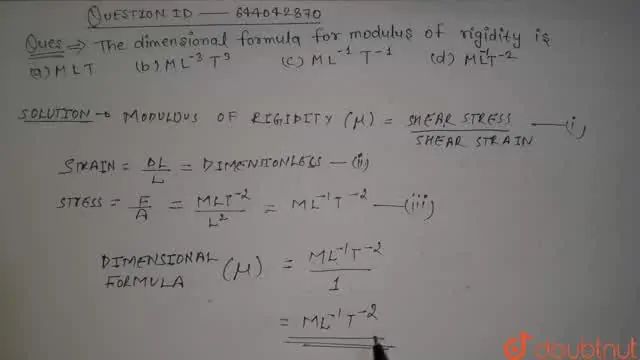 QUESTION ID — 644042870
Ques ⇒ The dimensional formula for modulus of rigidity is
(a) MLT (b) ML⁻³ T³ (c) ML⁻¹ T⁻¹ (d) ML⁻¹T⁻²
SOLUTION → MODULOUS OF RIGIDITY (μ) = SHEAR STRESS / SHEAR STRAIN —(i)
STRAIN = DL/L = DIMENTIONLESS —(ii)
STRESS = F/A = MLT⁻²/L² = ML⁻¹T⁻² —(iii)
DIMENSIONAL FORMULA (μ) = ML⁻¹T⁻²/1
= ML⁻¹T⁻²
doubtnut